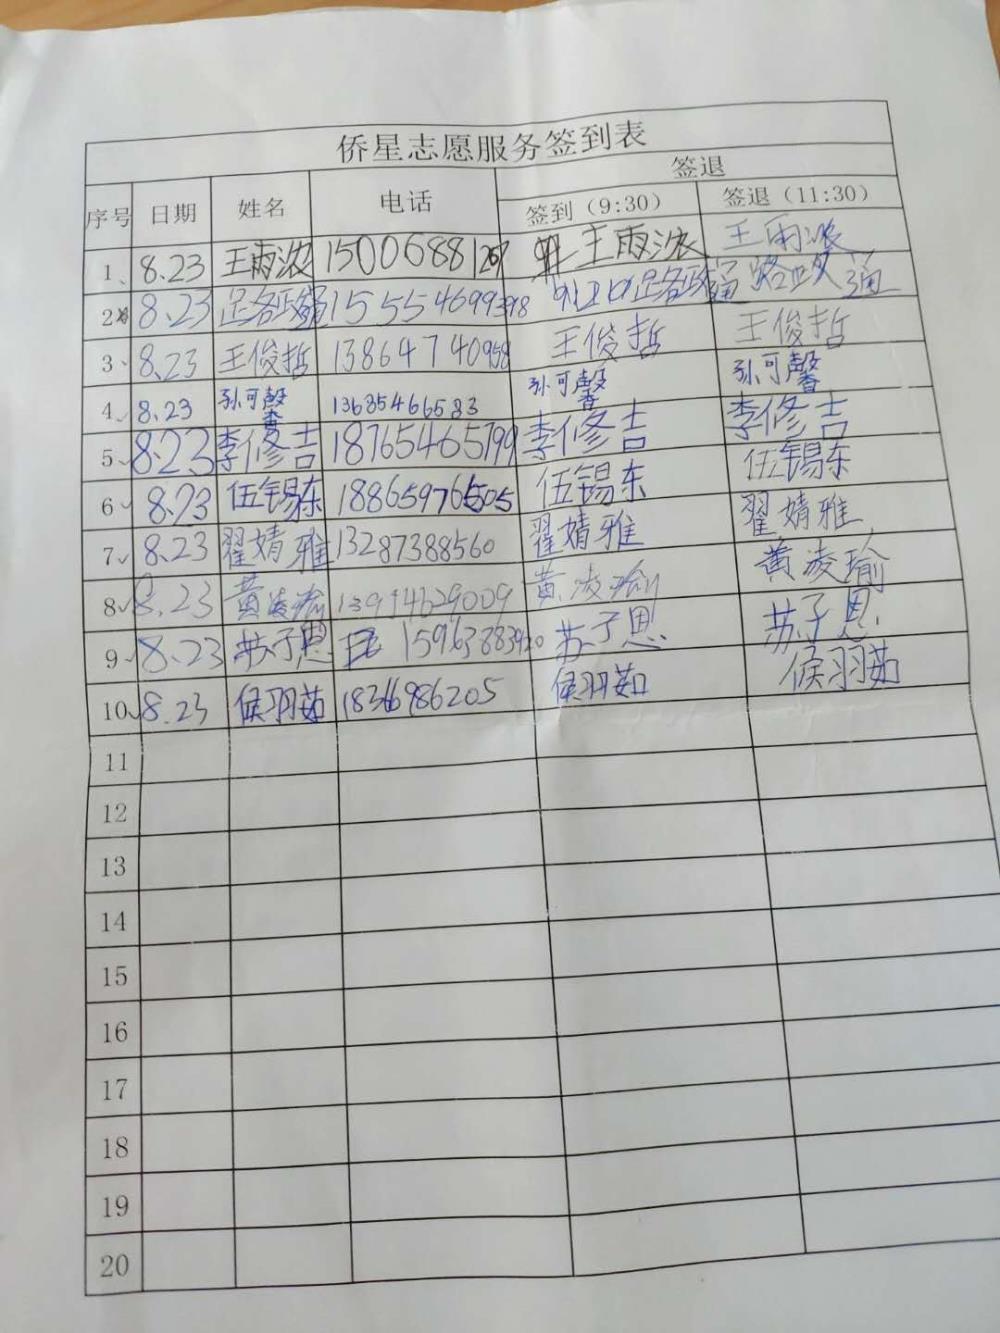 侨星志愿服务签到表
签退
序号 日期 姓名 电话 签到（9:30） 签退（11:30）
1、 8.23 王雨浓 王雨浓 王雨浓
2 8.23 路政通
3、 8.23 王俊哲 13864740958 王俊哲 王俊哲
4、 8.23 孙可馨 13685466583 孙可馨 孙可馨
5、 8.23 李修吉 18765465799 李修吉 李修吉
6、 8.23 伍锡东 18865976505 伍锡东 伍锡东
7、 8.23 翟婧雅 13287388560 翟婧雅 翟婧雅
8、 8.23 黄凌瑜 黄凌瑜 黄凌瑜
9、 8.23 苏子恩 苏子恩 苏子恩
10、 8.23 侯羽茹 18366986205 侯羽茹 侯羽茹
11
12
13
14
15
16
17
18
19
20